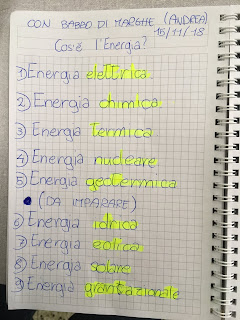 CON BABBO DI MARGHE (ANDREA)
15/11/18
Cos'è l'Energia?
1) Energia elettrica
2) Energia chimica
3) Energia termica
4) Energia nucleare
5) Energia geotermica
(DA IMPARARE)
6) Energia idrica
7) Energia eolica
8) Energia solare
9) Energia gravitazionale